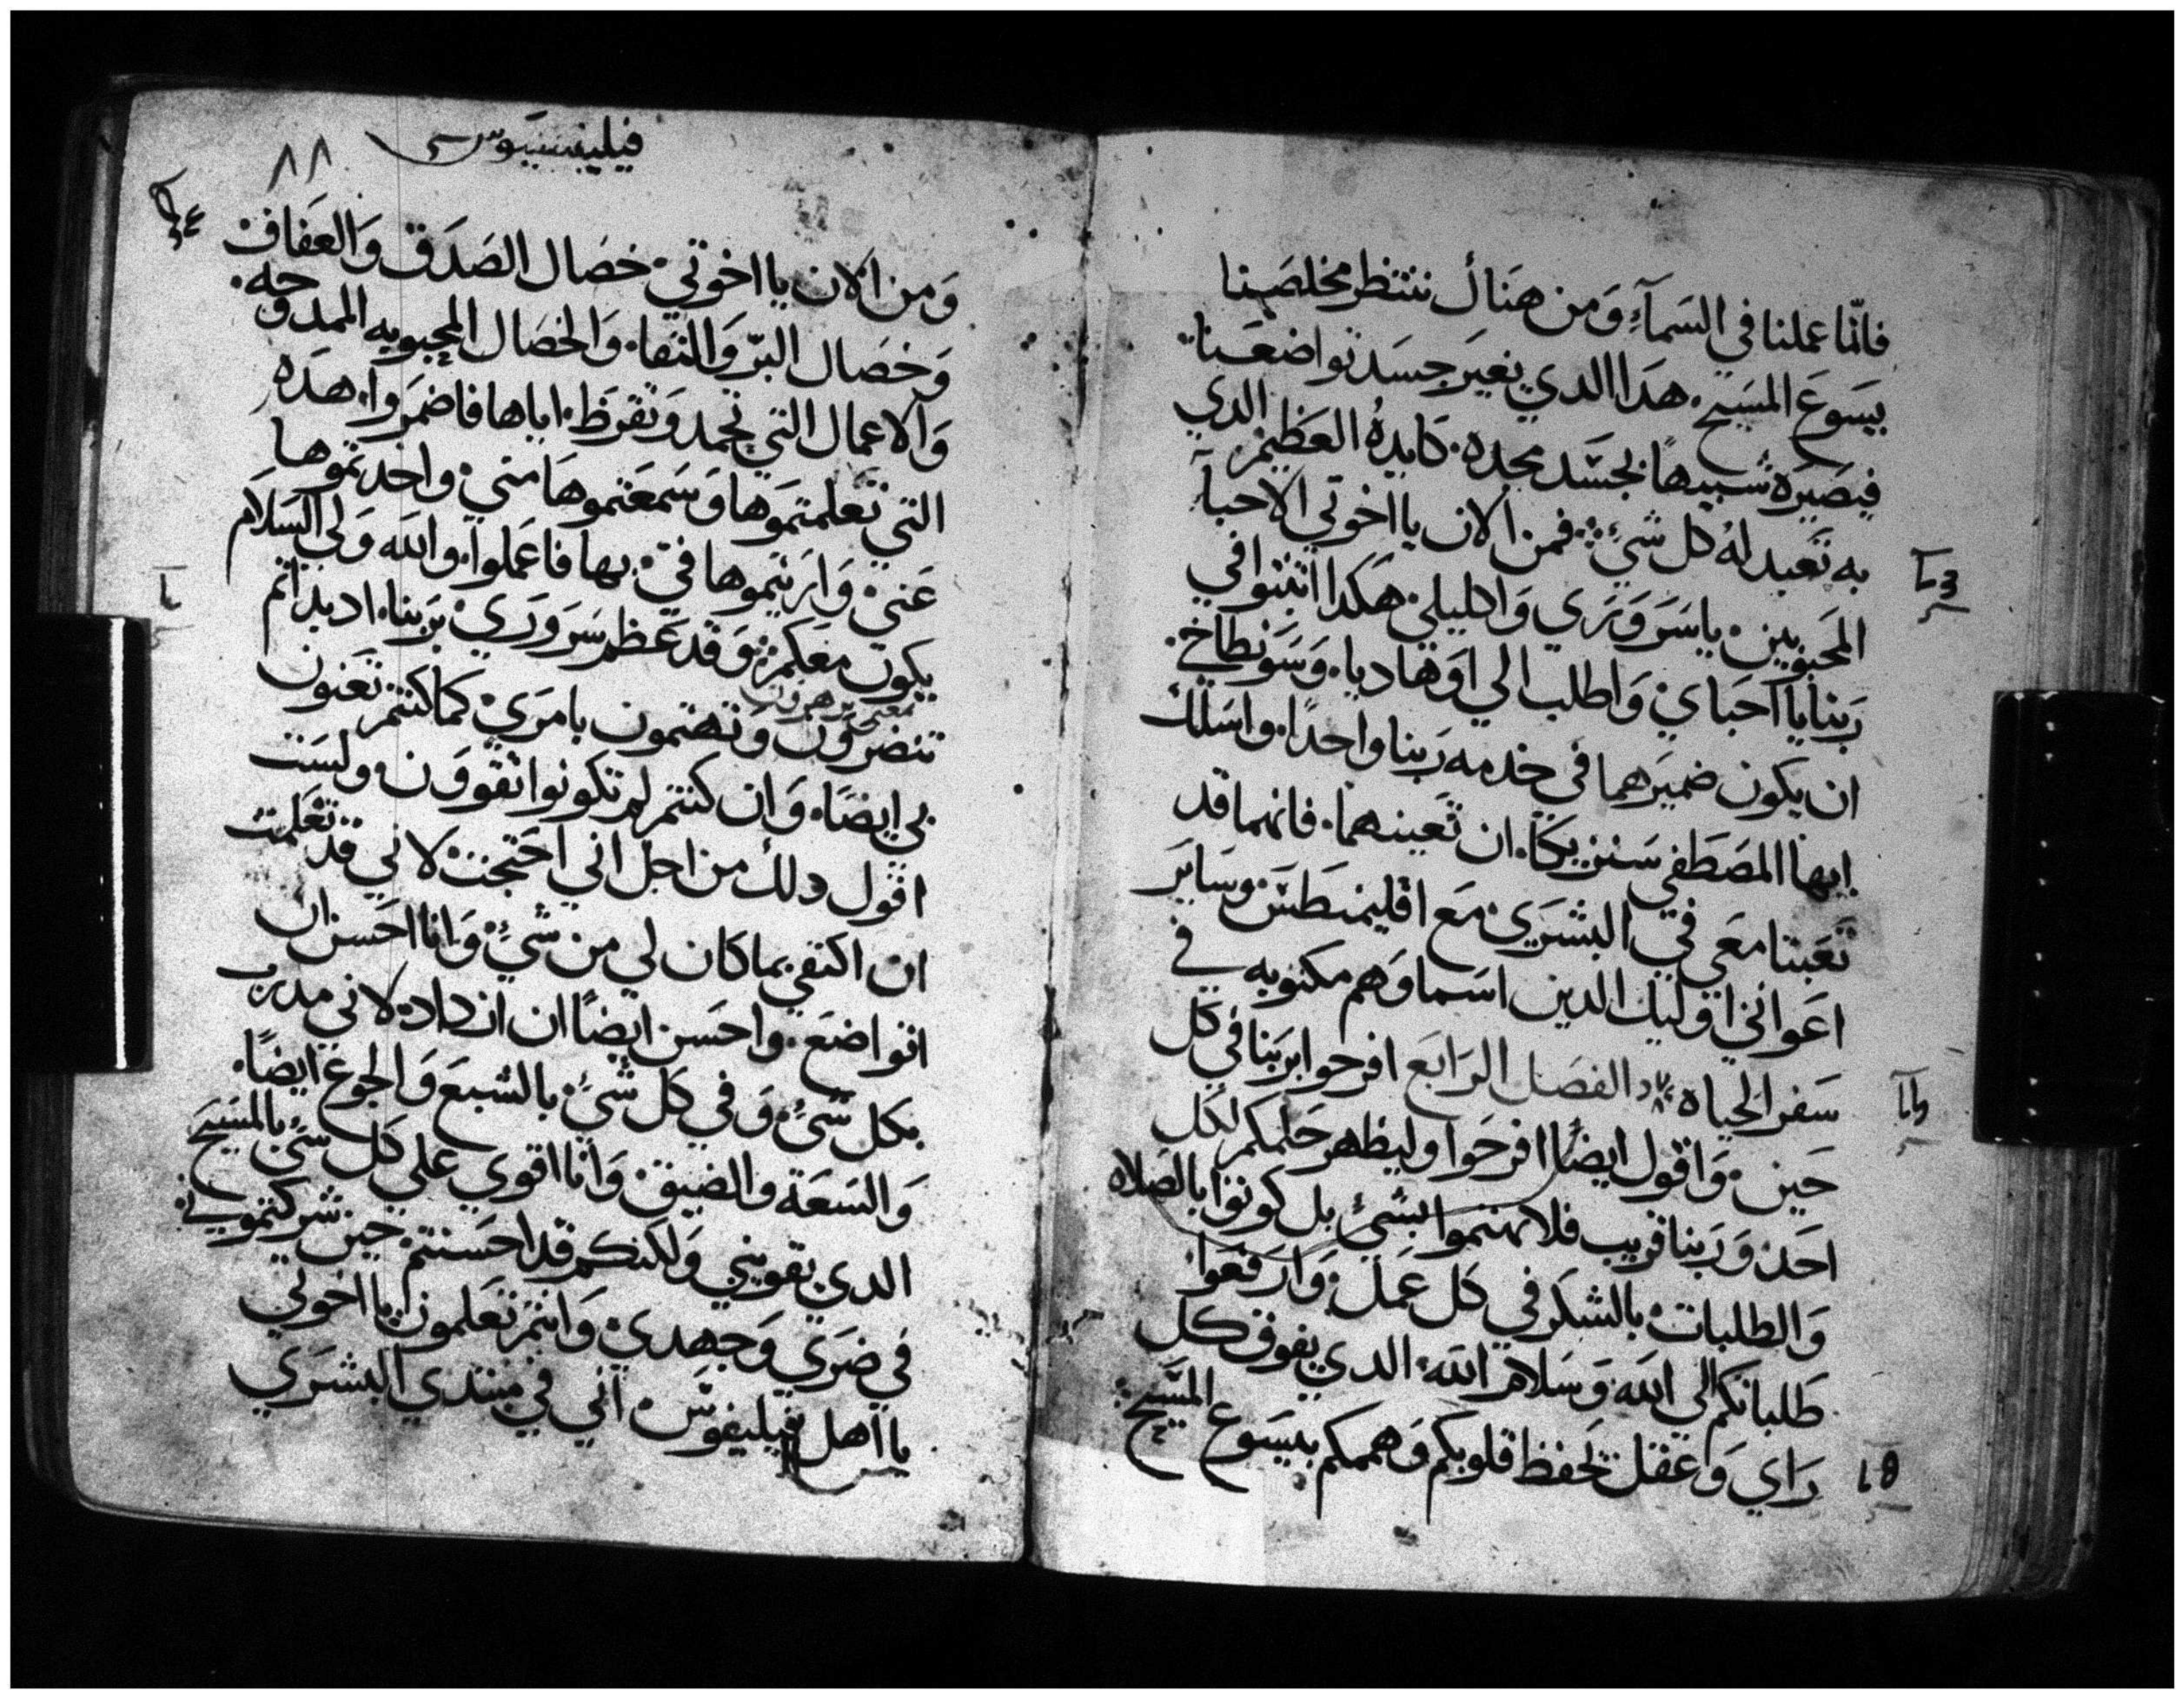 فانما عملنا في السماء ومن هناك ننتظر مخلصنا
يسوع المسيح هدا الدي يغير جسد تواضعنا
فيصيره شبيها بجسد مجده كايده العظيم الدي
به تعبد له كل شي فمن الان يا اخوتي الاحبا
المحبوبين يا سروري واكليلي هكدا اثبتوا في
ربنا يا احباي واطلب الي اوهاديا وسونطاخي
ان يكون ضميرهما في خدمه ربنا واحدا واسلك
ايها المصطفي سنزيكا ان تعينهما فانهما قد
تعبتا معي في البشري مع اقليمنطس وساير
اعواني اوليك الدين اسماوهم مكتوبه في
سفر الحياه الفصل الرابع افرحوا بربنا في كل
حين واقول ايضا افرحوا وليظهر حلمكم لكل
احد وربنا قريب فلا تهتموا بشي بل كونوا بالصلاه
والطلبات بالشكر في كل عمل وارفعوا
طلباتكم الي الله وسلام الله الدي يفوق كل
راي وعقل تحفظ قلوبكم وهممكم بيسوع المسيح
فيليبسيوس
٨٨
ومن الان يا اخوتي خصال الصدق والعفاف
وخصال البر والنقا والخصال المحبوبه الممدوحه
والاعمال التي تحمد وتقرظ اياها فاضمروا هده
التي تعلمتموها وسمعتموها مني واخدتموها
عني واريتموها في بها فاعملوا والله ولي السلام
يكون معكم وقد عظم سروري بربنا اد بداتم
تنضرون وتهتمون بامري كما كنتم تعنون
بي ايضا وان كنتم لم تكونوا تقوون ولست
اقول دلك من اجل اني احتجت لاني قد تعلمت
ان اكتفي بما كان لي من شي وانا احسن ان
اتواضع واحسن ايضا ان ازداد لاني مدرب
بكل شي وفي كل شي بالشبع والجوع ايضا
والسعة والضيق وانا اقوي علي كل شي بالمسيح
الدي يقويني ولكنكم قد احسنتم حين شركتموني
في ضري وجهدي وانتم تعلمون يا اخوتي
يا اهل فيليفوس اني في مبتدي البشري